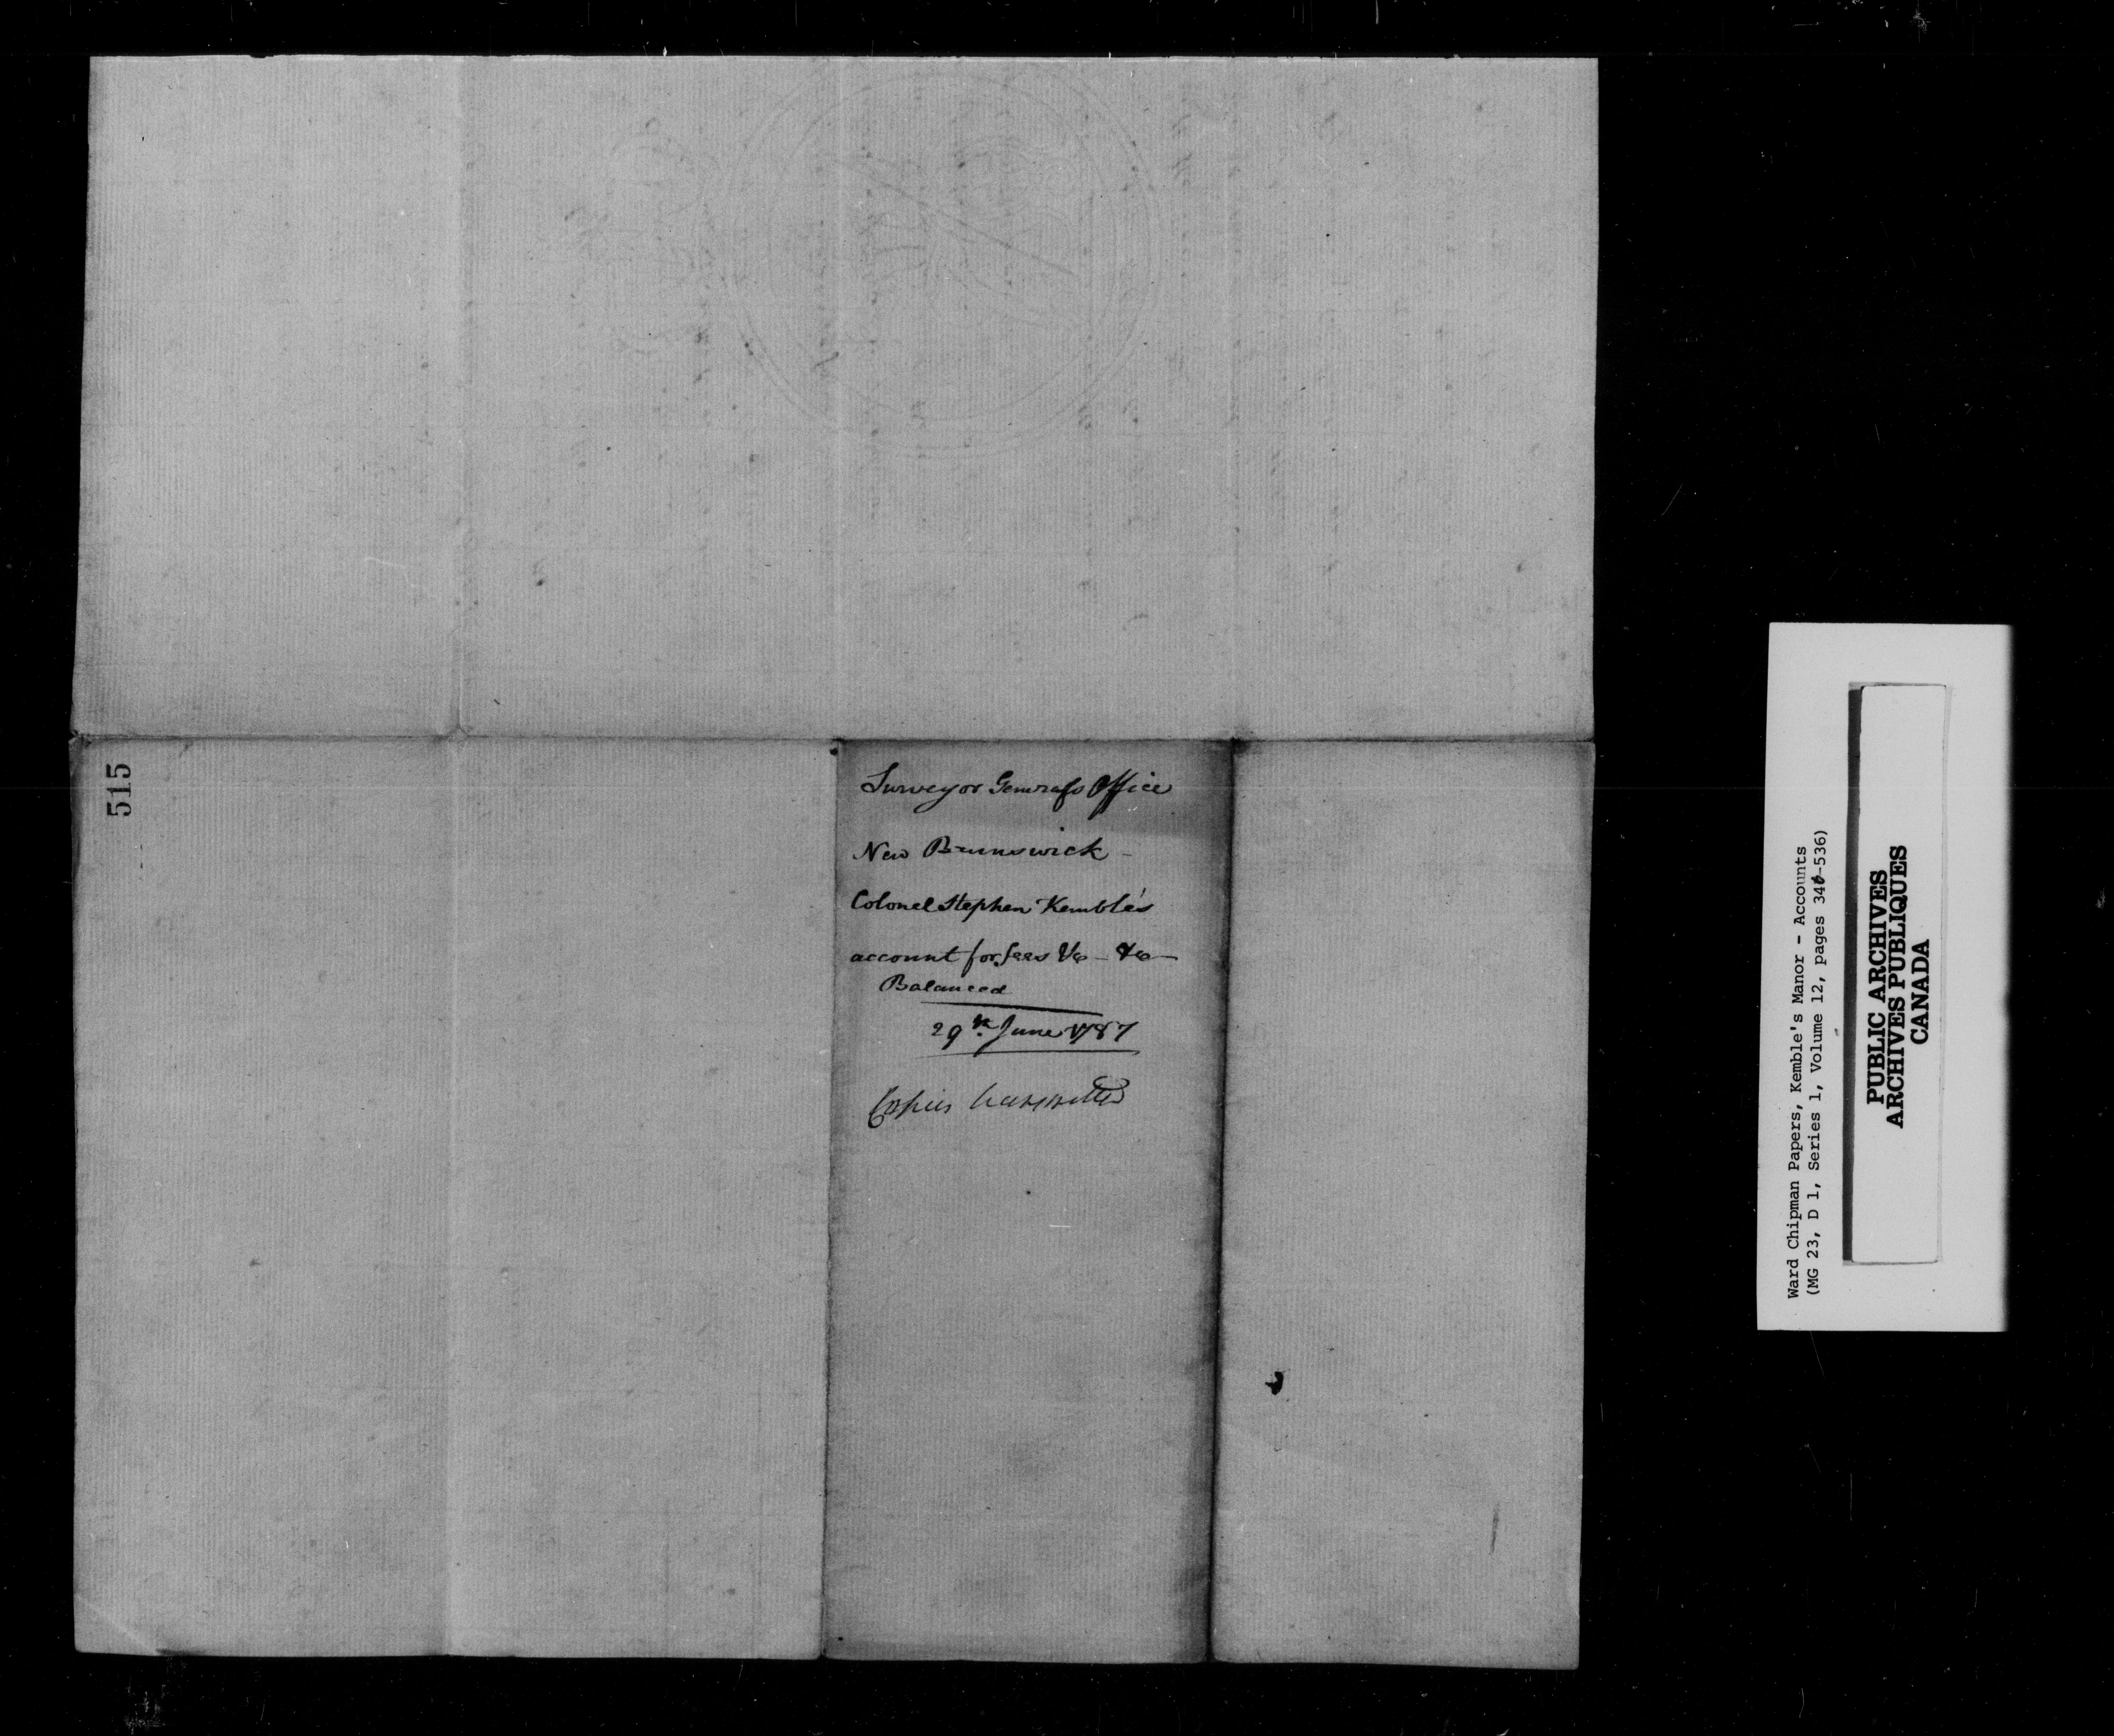 515
Surveyor Generals Office
New Brunswick -
Colonel Stephen Kemble's
account for fees &c - &c -
Balanced
29th. June 1787
Copies transmitted
Ward Chipman Papers, Kemble's Manor - Accounts
(MG 23, D 1, Series 1, Volume 12, pages 346-536)
PUBLIC ARCHIVES
ARCHIVES PUBLIQUES
CANADA